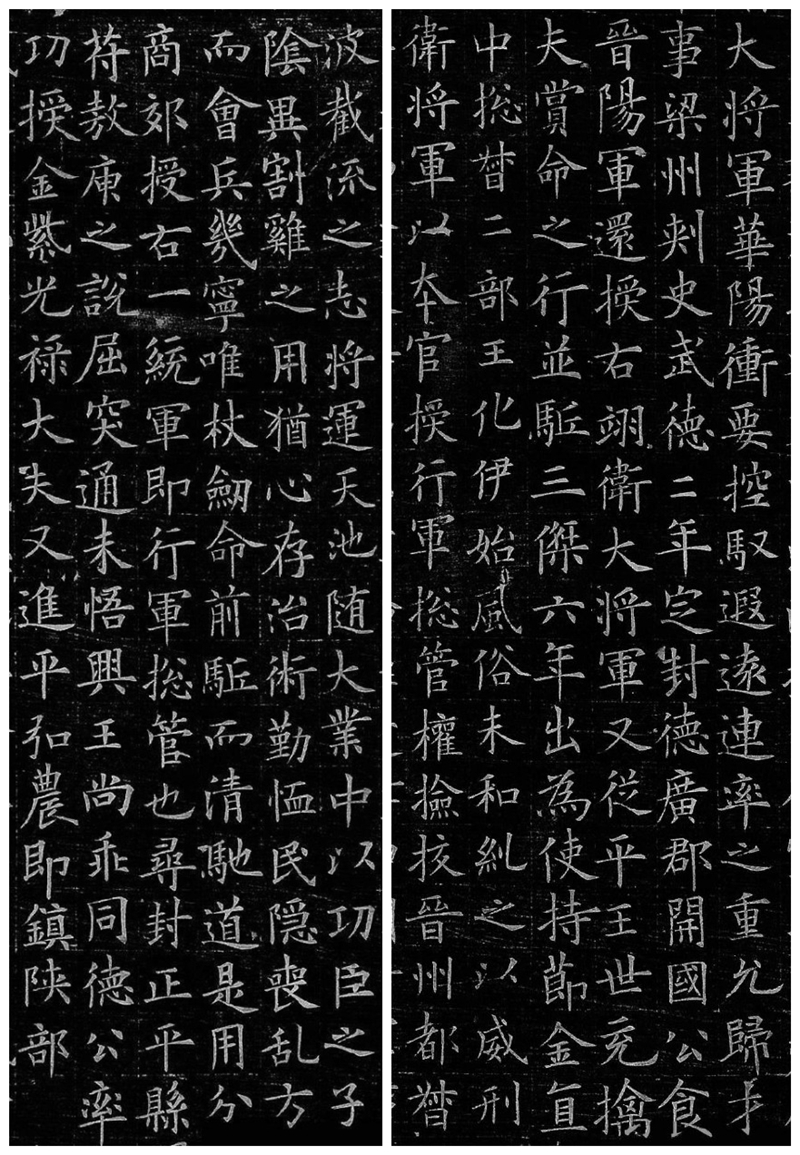 大將軍華陽衝要控馭遐遠連率之重允歸才
事梁州刾史武德二年定封德廣郡開國公食
晉陽軍還授右翊衛大將軍又從平王世充擒
夫賞命之行並駈三傑六年出為使持節金直
中捴督二部王化伊始風俗未和糺之以威刑
衛將軍以夲官授行軍捴管權撿挍晉州都督
波截流之志將運天池随大業中以功臣之子
陰異割雞之用猶心存治術勤恤民隠喪乱方
而會兵幾寧唯杖劒命前駈而清馳道是用分
商郊授右一統軍即行軍捴管也尋封正平縣
苻敖庾之說屈突通未悟興王尚乖同德公率
功授金紫光禄大夫又進平弘農即鎮陝部